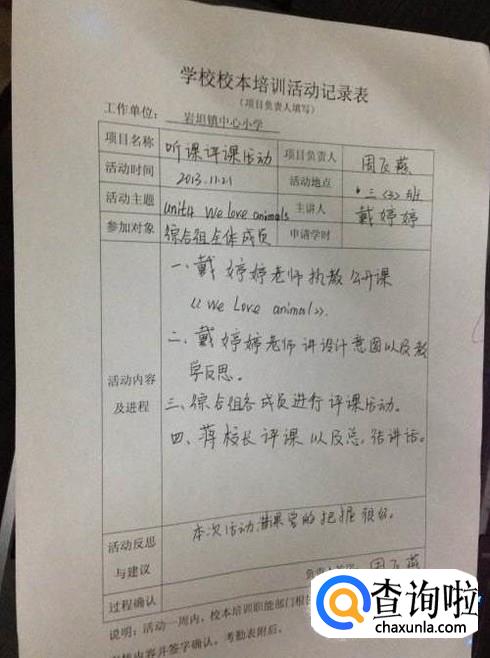 学校校本培训活动记录表
(项目负责人填写)
工作单位: 岩坦镇中心小学
项目名称 听课评课活动 项目负责人 周飞燕
活动时间 2013.11.21 活动地点 三〈3〉班
活动主题 unit4 We love animals 主讲人 戴婷婷
参加对象 综合组全体成员 申请学时
活动内容及进程
一、戴婷婷老师执教公开课
《We Love animal》.
二、戴婷婷老师讲设计意图以及教
学反思。
三、综合组各成员进行评课活动。
四、蒋校长评课以及总结讲话。
活动反思与建议
本次活动 课堂的把握很好。
周飞燕
过程确认
说明:活动一周内,校本培训职能部门根
内容并签字确认,考勤表附后。
查询啦
chaxunla.com